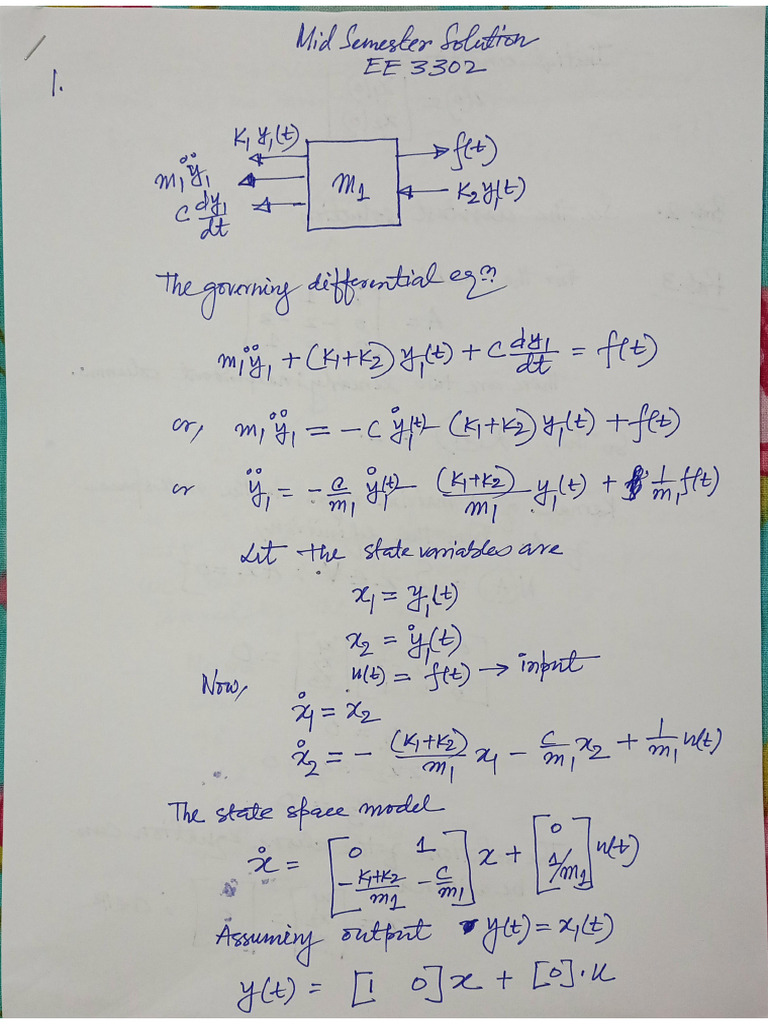 Mid Semester Solution
EE 3302
1.
K₁ y₁(t)
f(t)
m₁ÿ₁
m₁
K₂ y₁(t)
C dy₁/dt
The governing differential eqⁿ
m₁ÿ₁ + (K₁+K₂) y₁(t) + C dy₁/dt = f(t)
or, m₁ÿ₁ = -C ẏ₁(t) - (K₁+K₂) y₁(t) + f(t)
or ÿ₁ = -C/m₁ ẏ₁(t) - (K₁+K₂)/m₁ y₁(t) + 1/m₁ f(t)
Let the state variables are
x₁ = y₁(t)
x₂ = ẏ₁(t)
u(t) = f(t) → input
Now,
ẋ₁ = x₂
ẋ₂ = - (K₁+K₂)/m₁ x₁ - C/m₁ x₂ + 1/m₁ u(t)
The state space model
ẋ = [0 1; -K₁+K₂/m₁ -C/m₁] x + [0; 1/m₁] u(t)
Assuming output y(t) = x₁(t)
y(t) = [1 0] x + [0].u